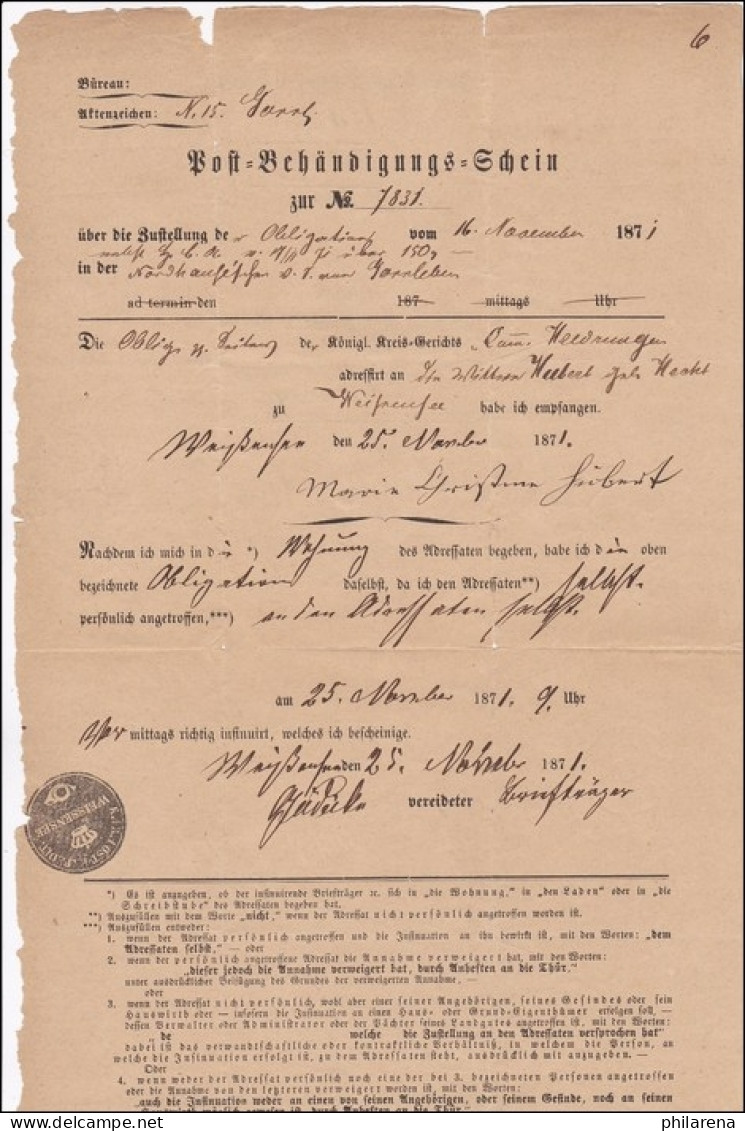 6
Büreau:
Aktenzeichen: N. 15.
Post-Behändigungs-Schein
zur No. 7831.
über die Zustellung der Obligation vom 16. November 1871
über 150
in der
ad termin den 187 mittags Uhr
Die Oblig. der Königl. Kreis-Gerichts Com. Heldrungen
adressirt an die Wittwe Hubert geb. Hecht
zu Weißensee habe ich empfangen.
Weißensee den 25. November 1871.
Marie Christine Hubert
Nachdem ich mich in die *) Wohnung des Adressaten begeben, habe ich die oben
bezeichnete Obligation daselbst, da ich den Adressaten**) selbst.
persönlich angetroffen,***) an den Adressaten selbst.
am 25. November 1871. 9. Uhr
Vor mittags richtig insinuirt, welches ich bescheinige.
Weißensee den 25. Novbr 1871.
vereideter Briefträger
WEISSENSEE
*) Es ist anzugeben, ob der insinuirende Briefträger ꝛc. sich in „die Wohnung,“ in „den Laden“ oder in „die
Schreibstube“ des Adressaten begeben hat.
**) Auszufüllen mit dem Worte „nicht,“ wenn der Adressat nicht persönlich angetroffen worden ist.
***) Auszufüllen entweder:
1. wenn der Adressat persönlich angetroffen und die Insinuation an ihn bewirkt ist, mit den Worten: „dem
Adressaten selbst,“ — oder
2. wenn der persönlich angetroffene Adressat die Annahme verweigert hat, mit den Worten:
„dieser jedoch die Annahme verweigert hat, durch Anheften an die Thür,“
unter ausdrücklicher Beifügung des Grundes der verweigerten Annahme, —
oder
3. wenn der Adressat nicht persönlich, wohl aber einer seiner Angehörigen, seines Gesindes oder sein
Hauswirth oder — insofern die Insinuation an einen Haus- oder Grund-Eigenthümer erfolgen soll, —
dessen Verwalter oder Administrator oder der Pächter seines Landgutes angetroffen ist, mit den Worten:
„de welche die Zustellung an den Adressaten versprochen hat“
dabei ist das verwandtschaftliche oder kontraktliche Verhältniß, in welchem die Person, an
welche die Insinuation erfolgt ist, zu dem Adressaten steht, ausdrücklich mit anzugeben. —
Oder
4. wenn weder der Adressat persönlich noch eine der bei 3. bezeichneten Personen angetroffen
oder die Annahme von den letzteren verweigert worden ist, mit den Worten:
„auch die Insinuation weder an einen von seinen Angehörigen, oder seinem Gesinde, noch an seinen
Hauswirth möglich gewesen ist, durch Anheften an die Thür.“
philarena